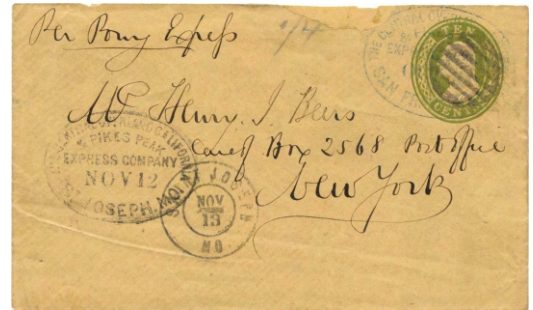 Per Pony Express
1/4
THE CENTRAL OVER
EXP
SAN FR
TEN
CENTS
Mr Henry J. Beers
Care of Box 2568 Post Office
New York
CENTRAL OVERLAND CALIFORNIA
& PIKES PEAK
EXPRESS COMPANY
NOV 12
ST JOSEPH, MO
SAINT JOSEPH
NOV
13
MO